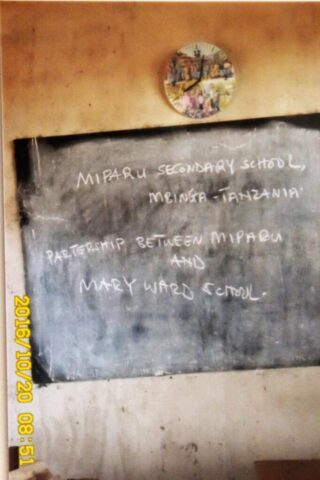 MIPARU SECONDARY SCHOOL,
MBINGA - TANZANIA
PARTERSHIP BETWEEN MIPARU
AND
MARY WARD SCHOOL.
2016/10/20 08:51